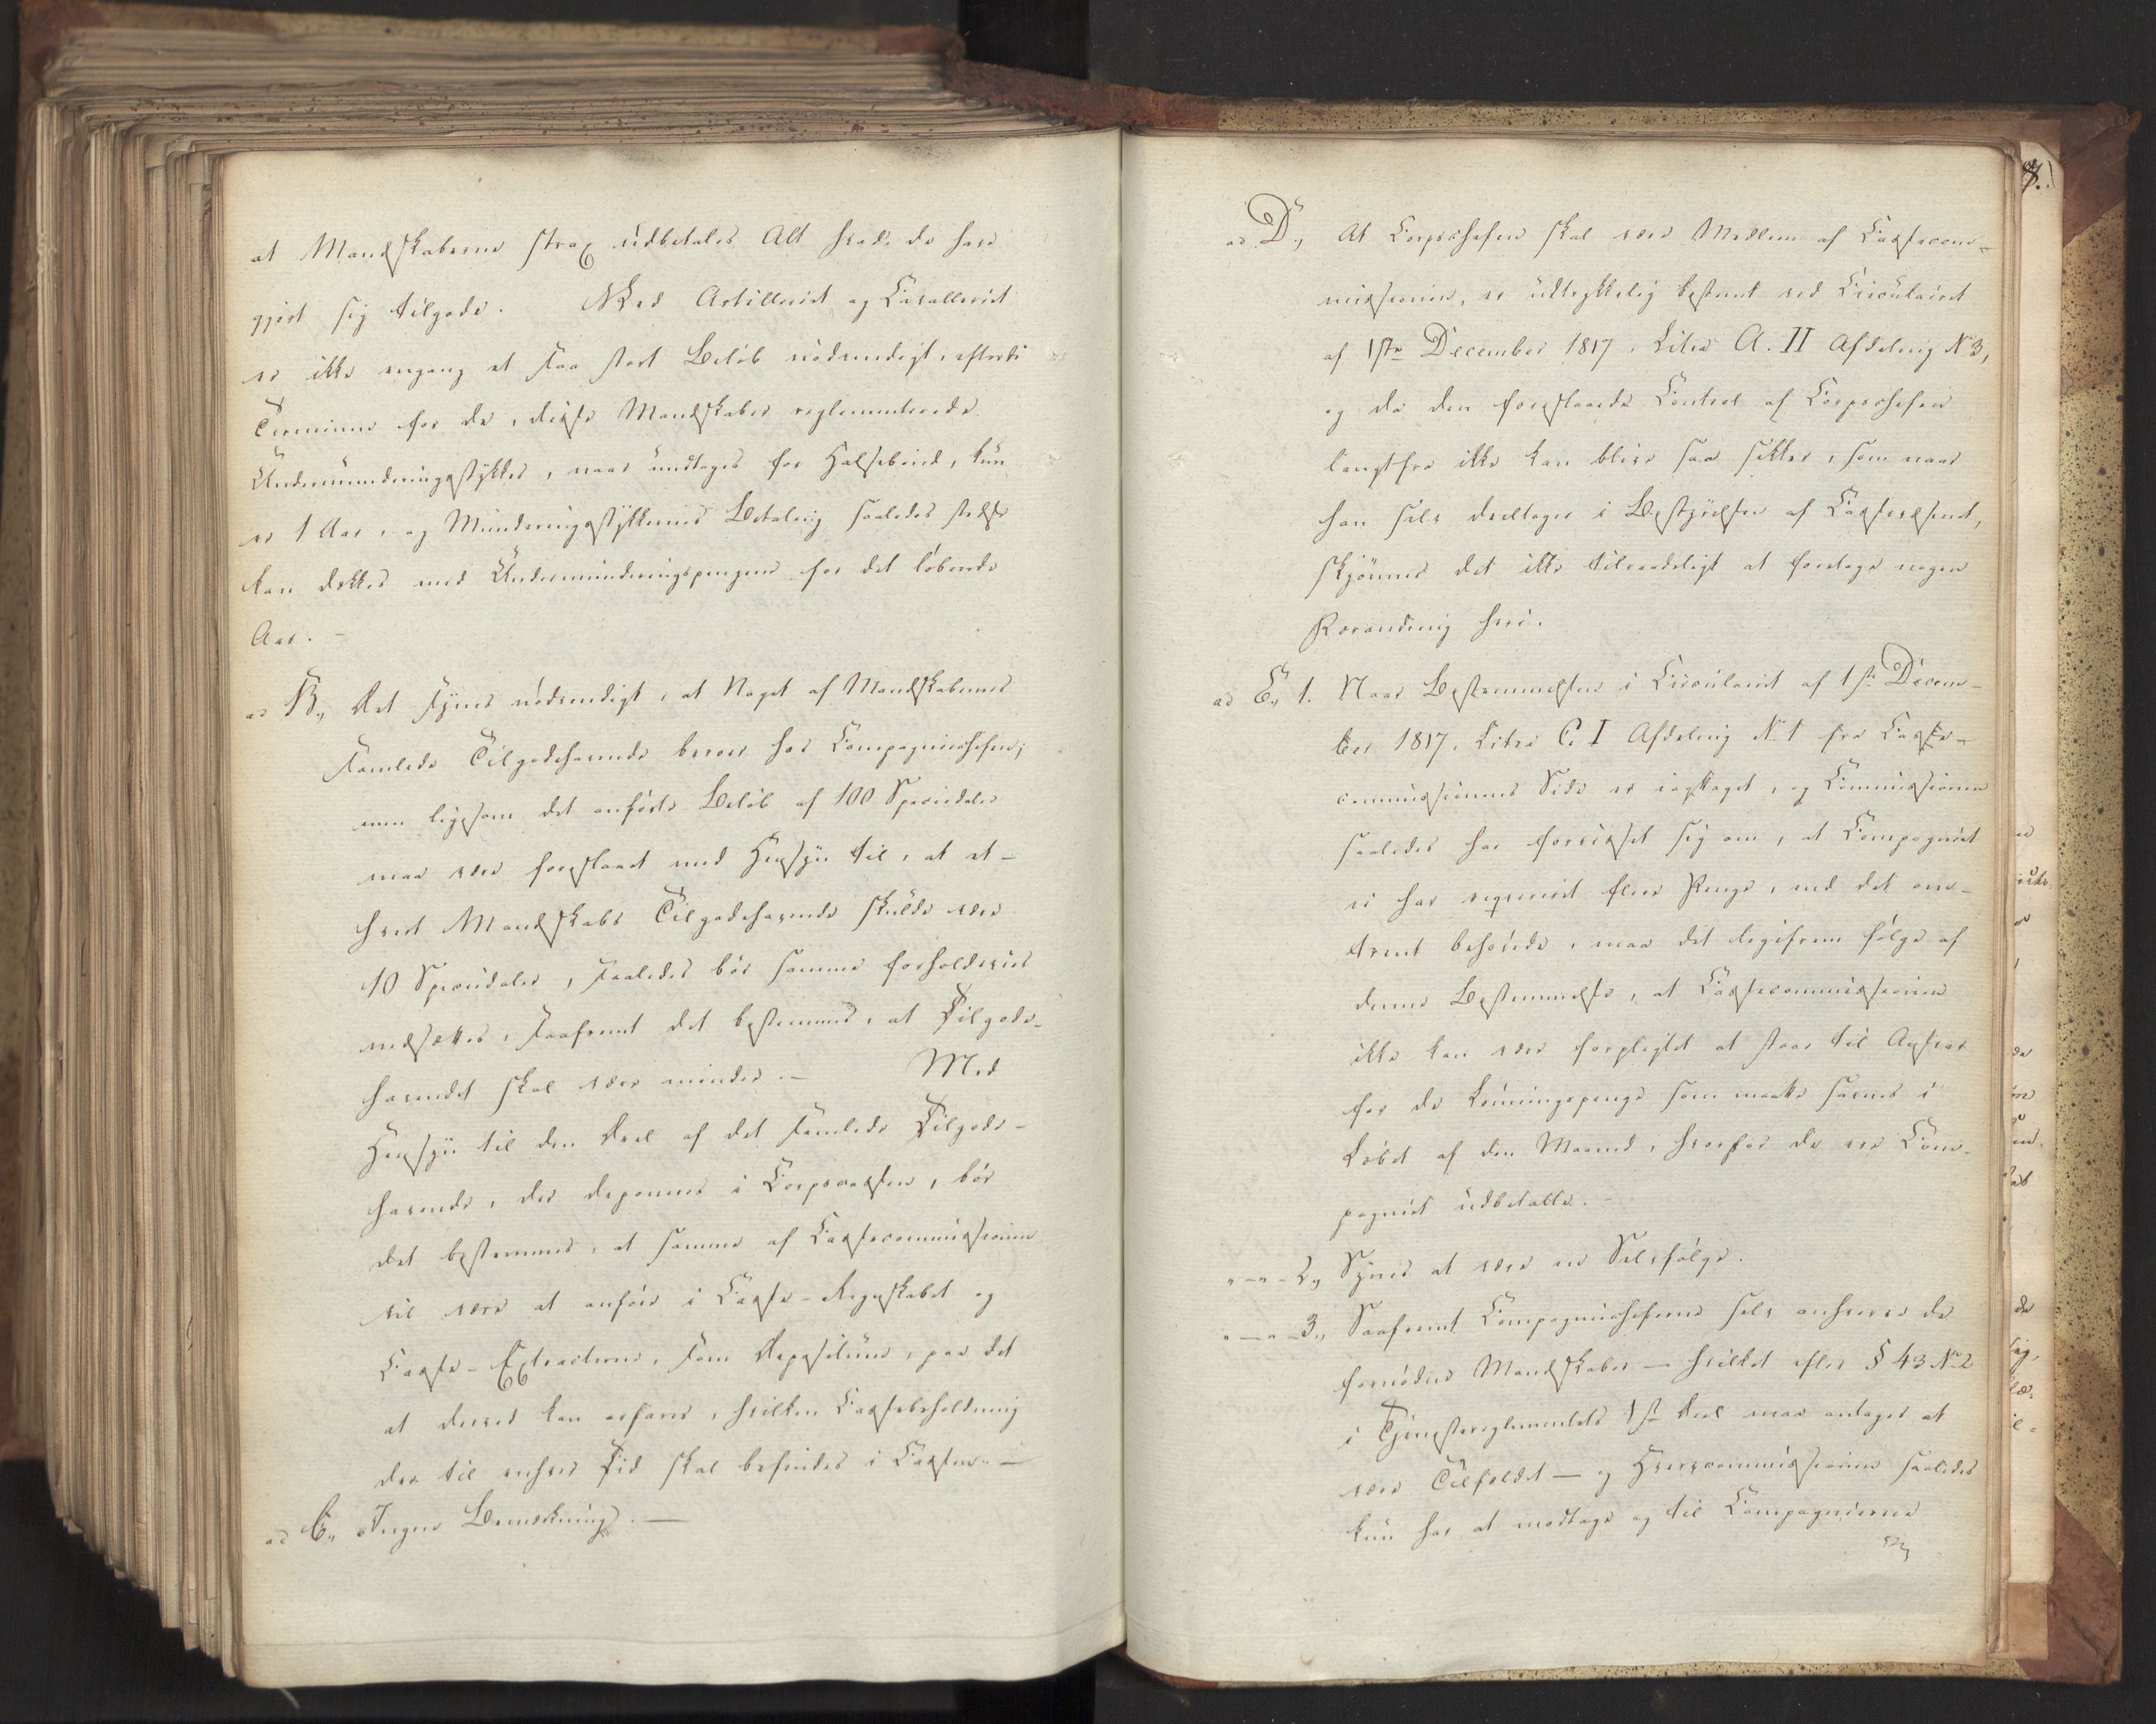 at Mandskaberne strax udbetales Alt hvad de have
gjort sig tilgode. Ved Artilleriet og Cavalleriet
er ikke engang et saa stort Beløb nødvendigt, efterdi
Terminen for de, disse Mandskaber reglementerede
Undermunderingsstykker, naar undtages for Halsebind, kun
er 1 Aar, og Munderingsstykkernes Betaling saaledes stedse
kan dækkes med Undermunderingspengene for det løbende
Aar. –
ad B., Det synes nødvendigt, at Noget af Mandskabernes
samlede Tilgodehavende beroer hos Compagniechefen;
men ligesom det anførte Beløb af 100 Speciedaler
maa være foreslaaet med Hensyn til, at et-
hvert Mandskabs Tilgodehavende skulde være
10 Speciedaler, saaledes bør samme forholdsviis
nedsættes, saafremt det bestemmes, at Tilgode-
havendet skal være mindre. – Med
Hensyn til den Deel af det samlede Tilgode-
havende, der deponeres i Corpscassen, bør
det bestemmes, at samme af Cassecommissionen
vil være at anføre i Casse-Regnskabet og
Casse-Extracterne, som Depositum, paa det
at derved kan erfares, hvilken Cassebeholdning
der til enhver Tid skal befindes i Cassen. –
ad C., Ingen Bemærkning. –
ad D., At Corpschefen skal være Medlem af Cassecom-
missionen, er udtrykkelig bestemt ved Circulairet
af 1ste December 1817, Litra A. II Afdeling No 3,
og da den foreslaaede Control af Corpschefen
langtfra ikke kan blive saa sikker, som naar
han selv deeltager i Bestyrelsen af Cassevæsenet,
skjønnes det ikke tilraadeligt at foretage nogen
Forandring heri.
ad E., 1. Naar Bestemmelsen i Circulairet af 1ste Decem-
ber 1817, Litra C. I Afdeling No 1 fra Casse-
commissionens Side er iagttaget, og Commissionen
saaledes har forvisset sig om, at Compagniet
ei har reqvireret flere Penge, end det om-
trent behøvede, maa det ligefrem følge af
denne Bestemmelse, at Cassecommissionen
ikke kan være forpligtet at staae til Ansvar
for de Lønningspenge som maatte savnes i
Løbet af den Maaned, hvorfor de ere Com-
pagniet udbetalte. –
" — " – 2., Synes at være en Selvfølge.
" — " – 3., Saafremt Compagniecheferne selv anhverve de
fornødne Mandskaber – hvilket efter § 43 No 2
i Tjenestereglementets 1ste Deel maa antages at
være Tilfældet – og Hvervcommissionen saaledes
kun har at modtage og til Compagnierne